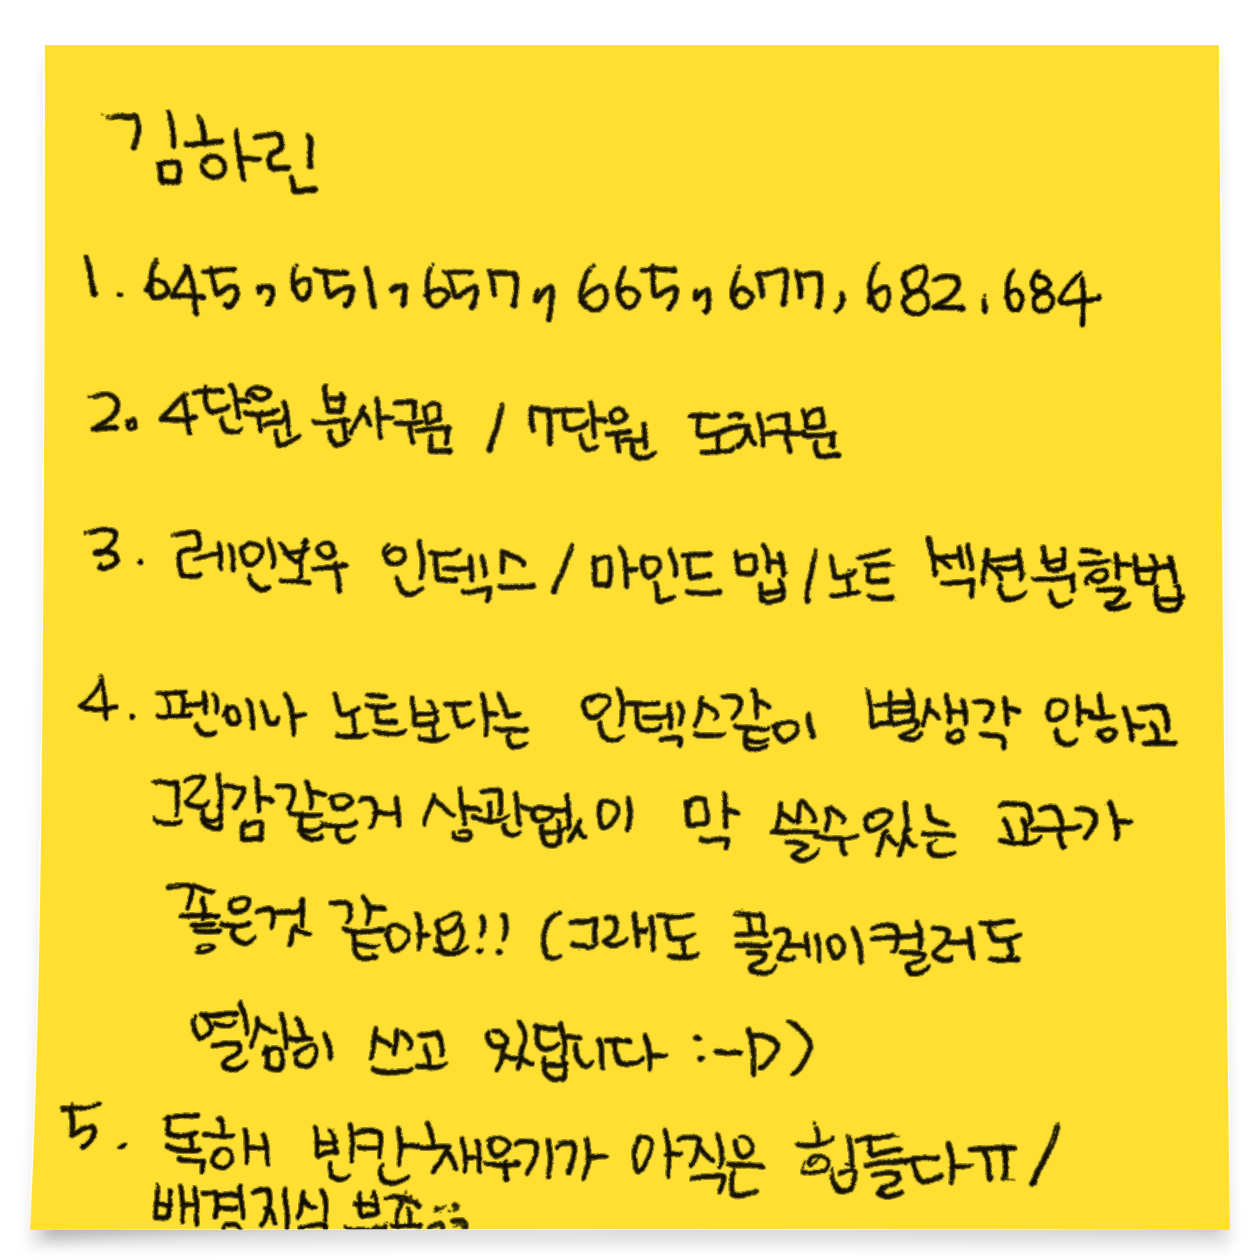 김하린
1. 645, 651, 657, 665, 677, 682, 684
2. 4단원 분사구문 / 7단원 도치구문
3. 레인보우 인덱스 / 마인드 맵 / 노트 섹션분할법
4. 펜이나 노트보다는 인덱스같이 별생각 안하고
그립감같은거 상관없이 막 쓸수있는 교구가
좋은것 같아요!! (그래도 플레이컬러도
열심히 쓰고 있답니다 :-D)
5. 독해 빈칸채우기가 아직은 힘들다ㅠ /
배경지식 부족